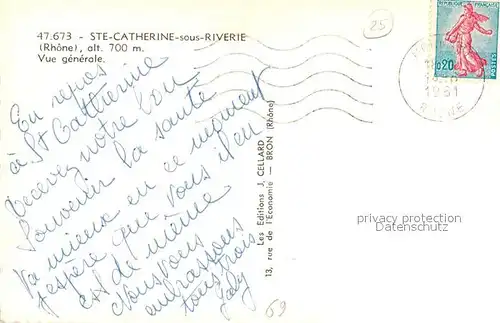 47.673 - STE-CATHERINE-sous-RIVERIE
(Rhône), alt. 700 m.
Vue générale.
25
REPUBLIQUE FRANÇAISE
0,20
POSTES
1961
RHONE
En repos
à St Catherine
Recevez notre bon
souvenir la santé
va mieux en ce moment
j'espère que vous il en
est de même
Nous vous
embrassons
tous trois
Les Editions J. CELLARD
13, rue de l'Economie — BRON (Rhône)
privacy protection
Datenschutz
69